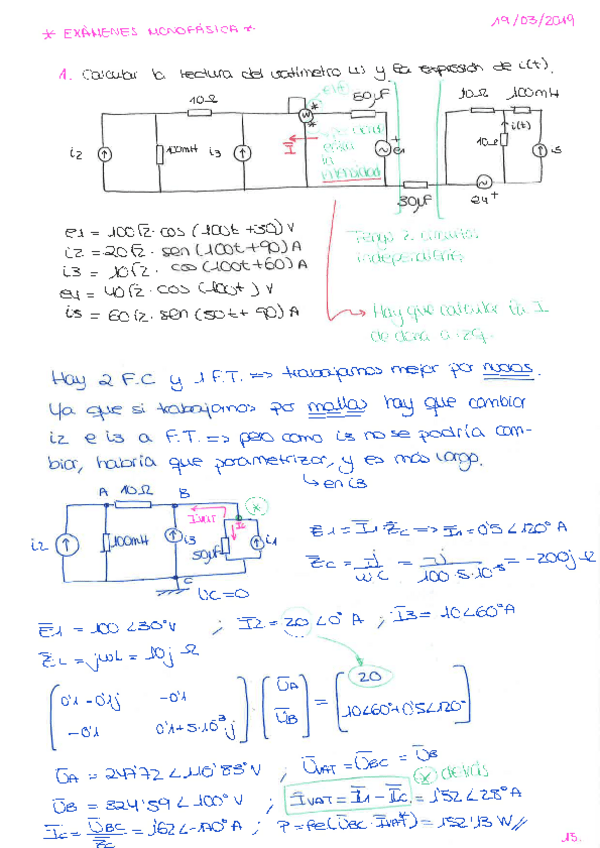 19/03/2019
* EXÁMENES MONOFÁSICA *
1. Calcular la lectura del vatímetro W y la expresión de i(t).
10Ω
50μF
10Ω 100mH
W
i2
100mH
i3
I
e1
10Ω
i(t)
i5
la
intensidad
30μF
e1 = 100√2 · cos (100t + 30) V
i2 = 20√2 · sen (100t + 90) A
i3 = 10√2 · cos (100t + 60) A
e4 = 40√2 · cos (100t) V
i5 = 60√2 · sen (50t + 90) A
Tengo 2 circuitos
independientes
Hay que calcular la I
de dcha a izq.
Hay 2 F.C y 1 F.T. => trabajamos mejor por nudos.
Ya que si trabajamos por mallas hay que cambiar
i2 e i3 a F.T. => pero como i3 no se podría cam-
biar, habría que parametrizar, y es más largo.
↳ en i3
A 10Ω B
IVAT
*
IC
i2
100mH
i3
50μF
i1
C
UC=0
E1 = I1 · ZC => I1 = 0'5∠120° A
ZC = -j/ωC = -j/100·5·10⁻⁵ = -200j Ω
E1 = 100∠30° V ; I2 = 20∠0° A ; I3 = 10∠60° A
ZL = jωL = 10j Ω
0'1 - 0'1j -0'1
-0'1 0'1 + 5·10⁻³j
·
UA
UB
=
20
10∠60° + 0'5∠120°
UA = 247'72∠110'83° V ; UVAT = UBC = UB
* detrás
UB = 324'59∠100° V ; IVAT = I1 - IC = 1'52∠28° A
IC = UBC/ZC = 1'62∠-170° A ; P = Re(UBC · IVAT*) = 152'13 W //
13.